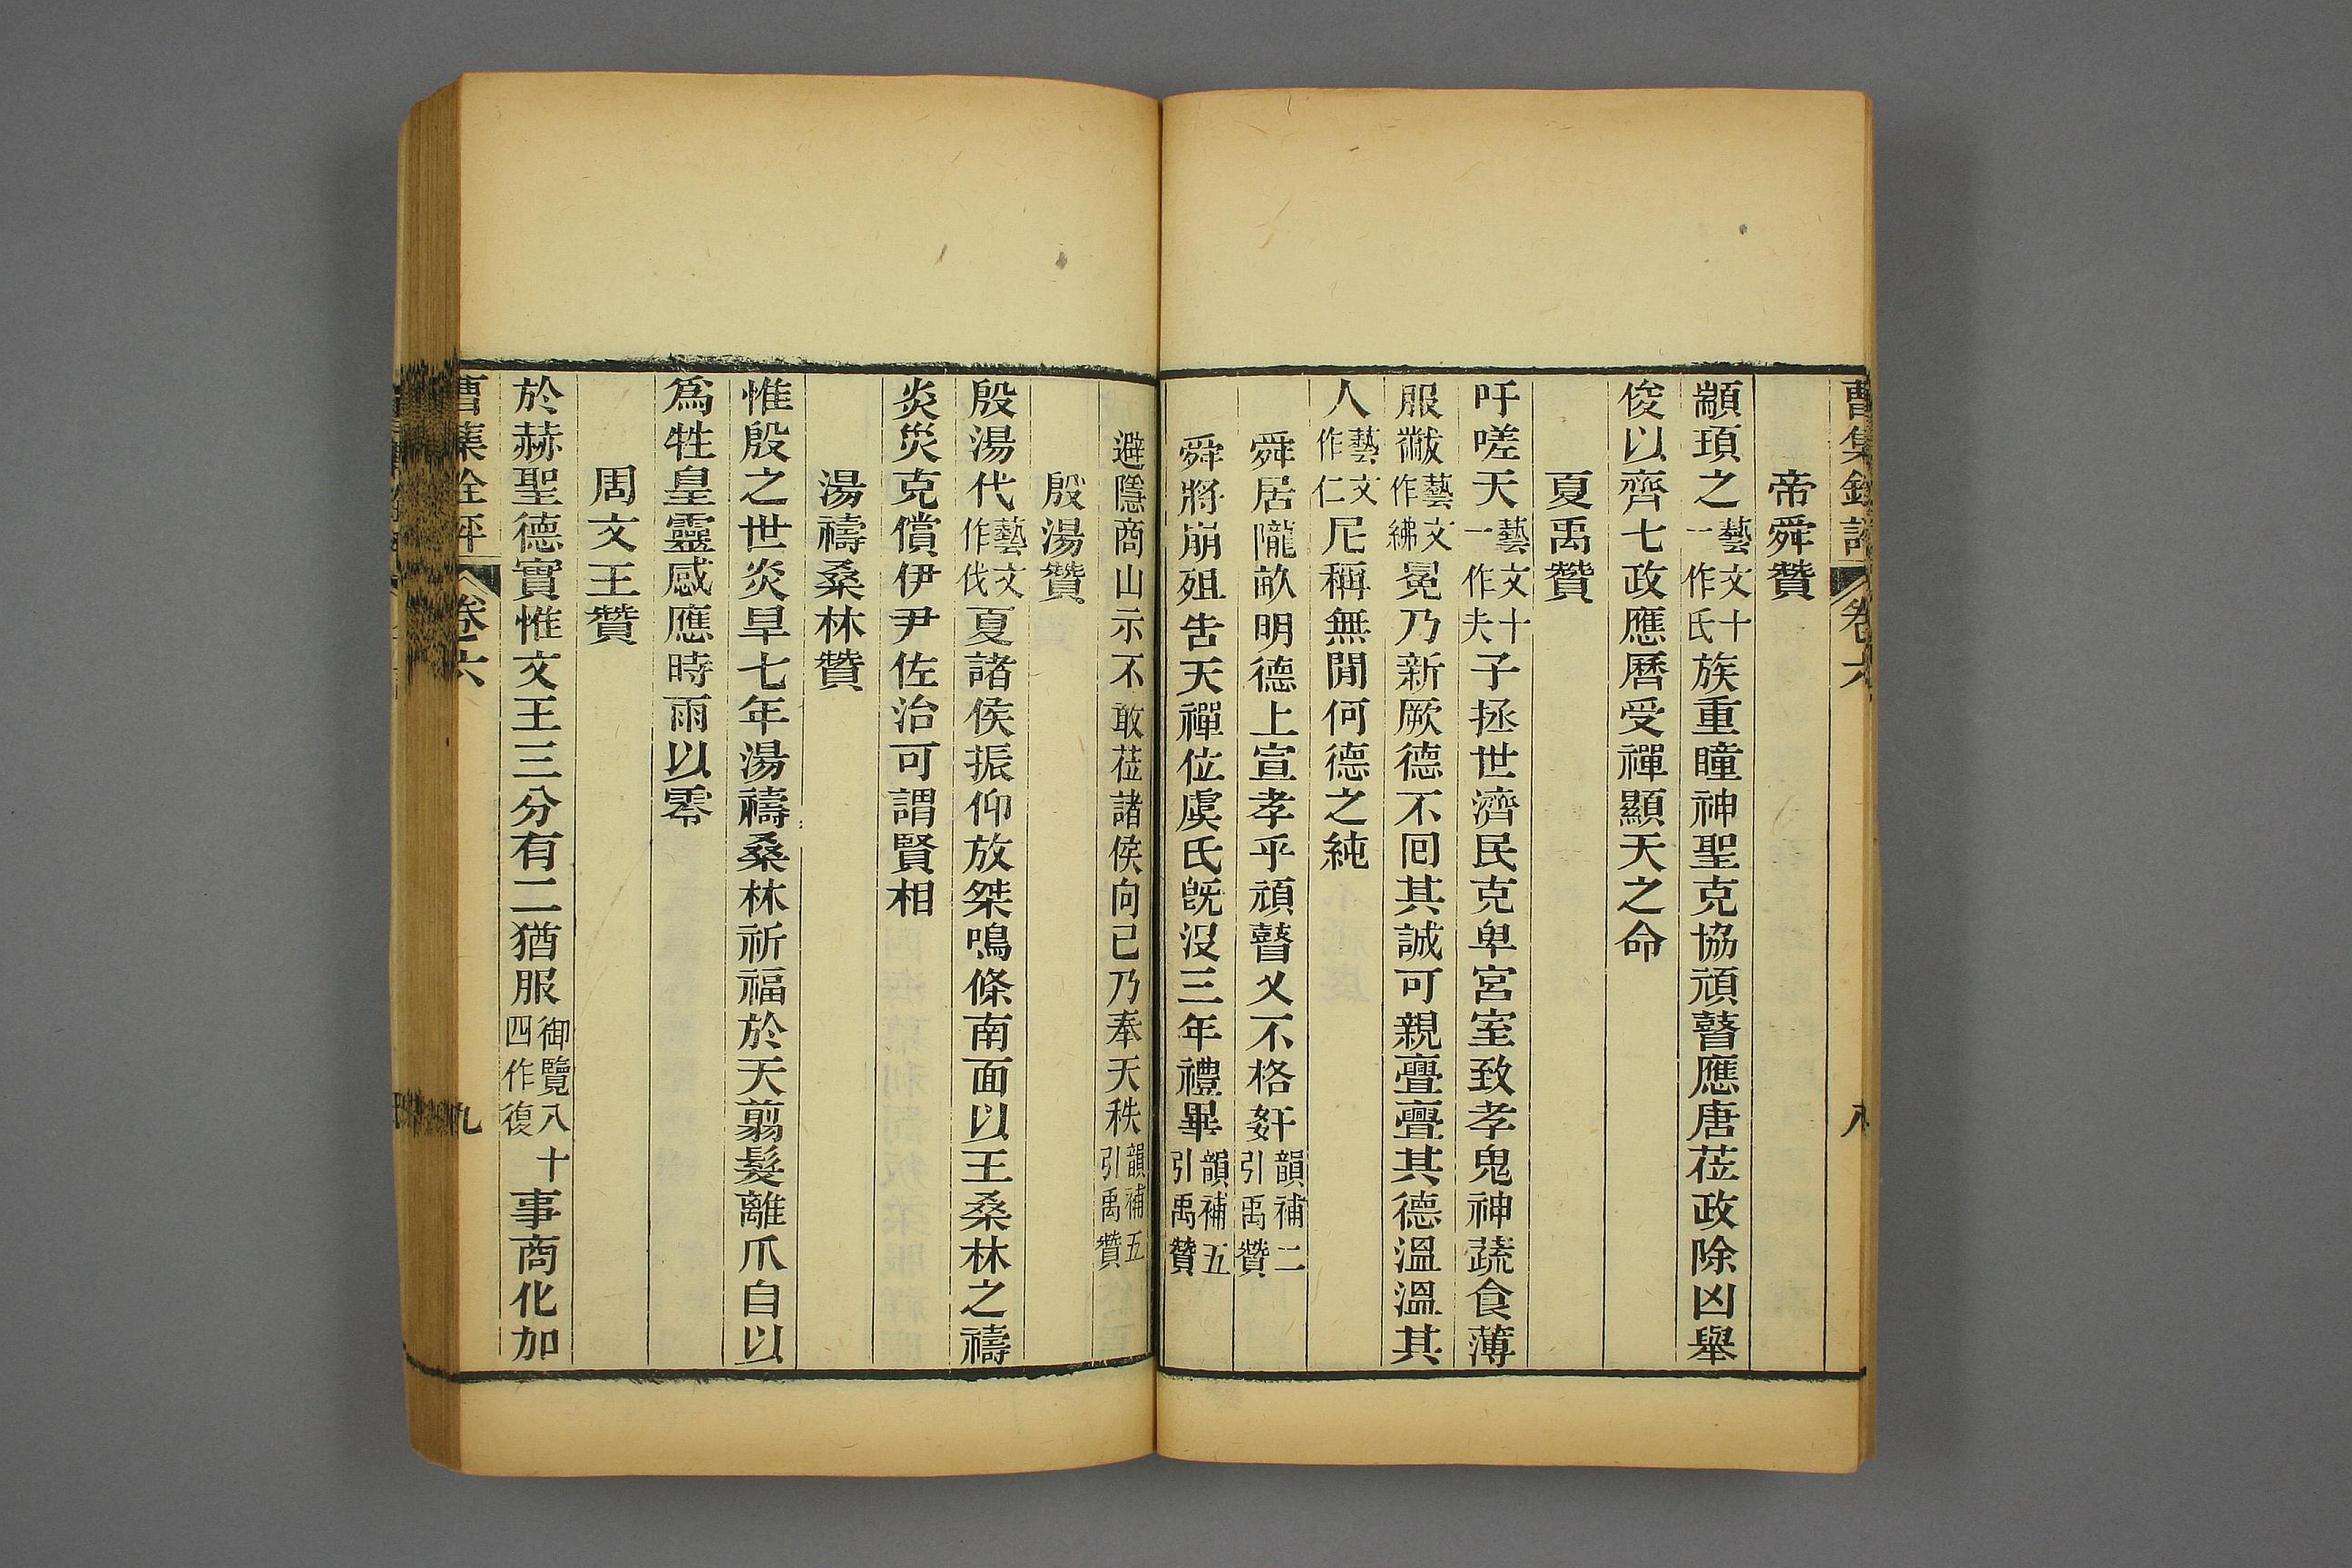 曹集銓評 卷六 八
帝舜贊
顓頊之藝文十一作氏族重瞳神聖克協頑瞽應唐莅政除凶舉
俊以齊七政應曆受禪顯天之命
夏禹贊
吁嗟天藝文十一作夫子拯世濟民克卑宮室致孝鬼神蔬食薄
服黻藝文作紼冕乃新厥德不回其誠可親亹亹其德溫溫其
人藝文作仁尼稱無閒何德之純
舜居隴畝明德上宣孝乎頑瞽乂不格姦韻補二引禹贊
舜將崩殂告天禪位虞氏既沒三年禮畢韻補五引禹贊
避隱商山示不敢莅諸侯向已乃奉天秩韻補五引禹贊
殷湯贊
殷湯代藝文作伐夏諸侯振仰放桀鳴條南面以王桑林之禱
炎災克償伊尹佐治可謂賢相
湯禱桑林贊
惟殷之世炎旱七年湯禱桑林祈福於天翦髮離爪自以
爲牲皇靈感應時雨以零
周文王贊
於赫聖德實惟文王三分有二猶服御覽八十四作復事商化加
曹集銓評 卷六 九